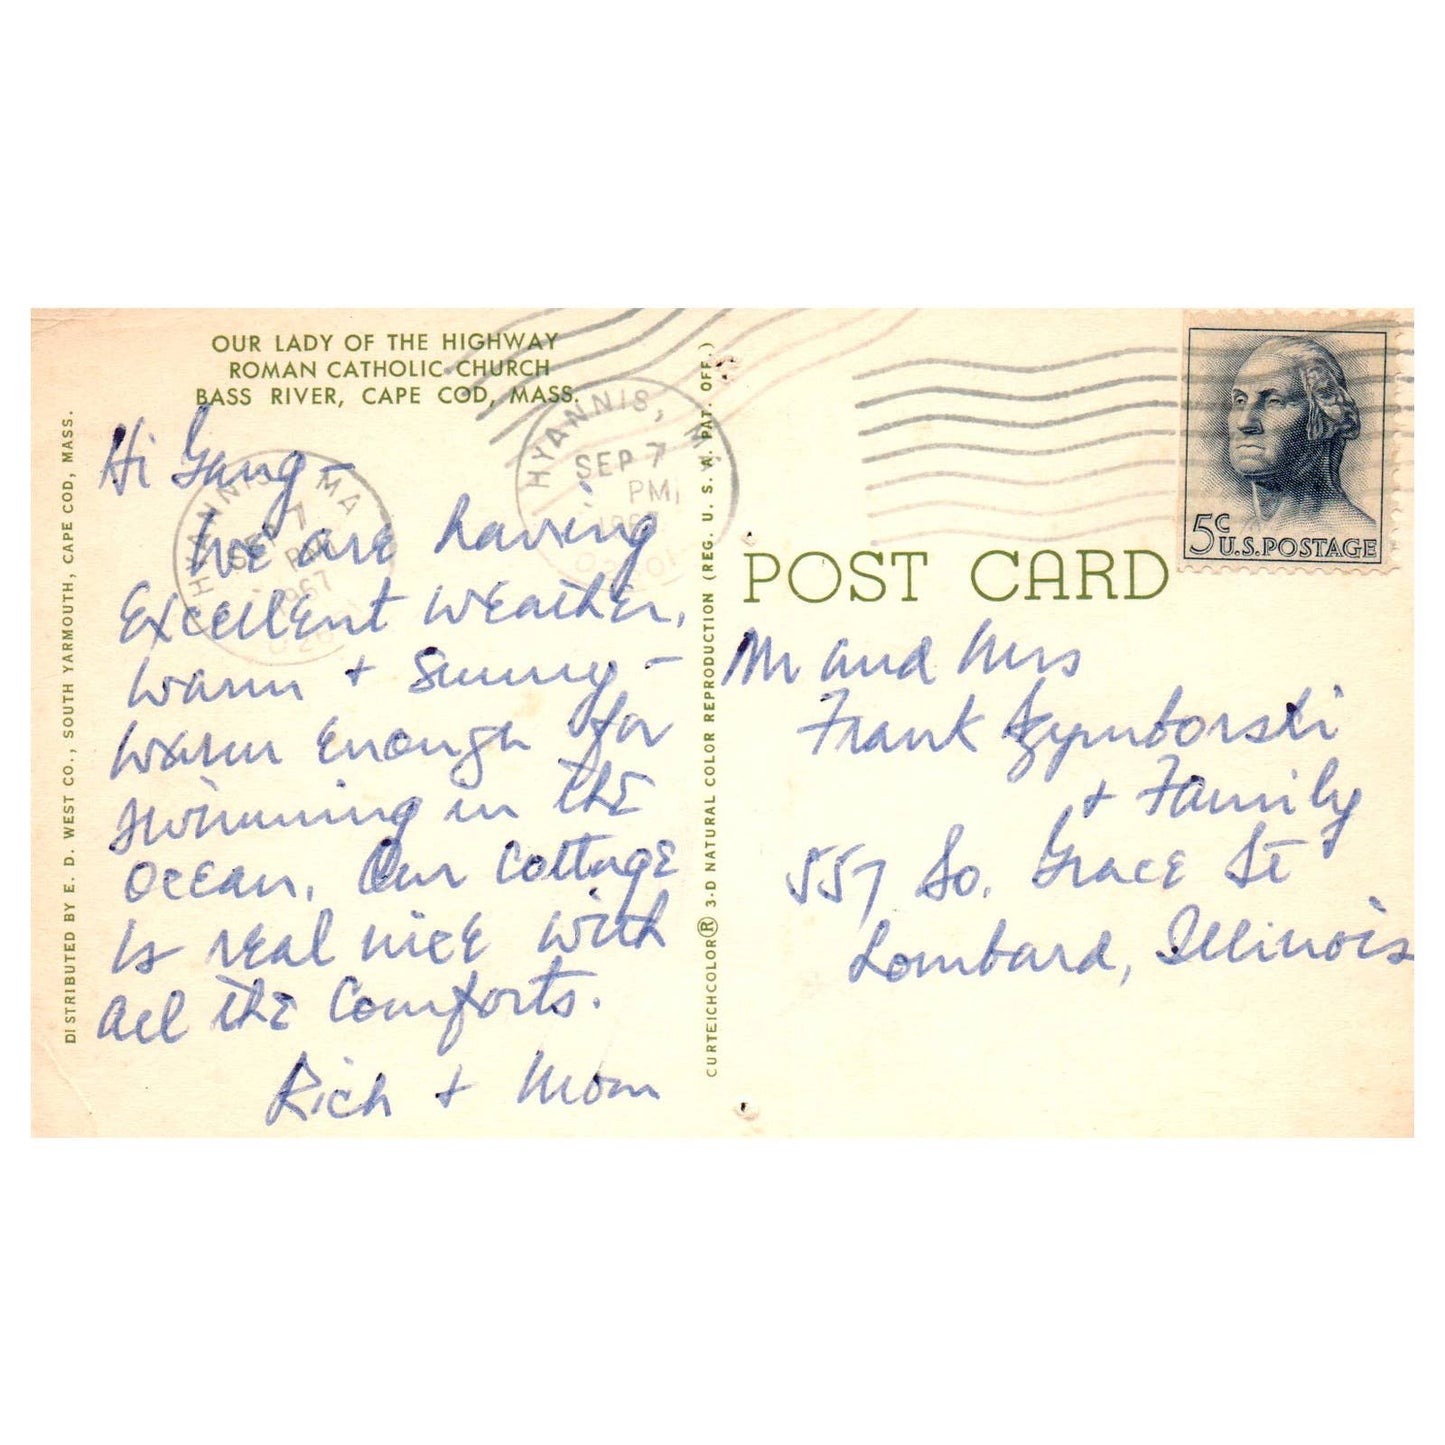 OUR LADY OF THE HIGHWAY
ROMAN CATHOLIC CHURCH
BASS RIVER, CAPE COD, MASS.
DISTRIBUTED BY E. D. WEST CO., SOUTH YARMOUTH, CAPE COD, MASS.
Hi Gang –
We are having
Excellent weather,
warm + sunny –
warm enough for
swimming in the
ocean. Our cottage
is real nice with
all the comforts.
Rich + Mom
HYANNIS, MA
SEP 7
PM
1967
HYANNIS, MA
SEP 7
PM
1967
CURTEICHCOLOR® 3-D NATURAL COLOR REPRODUCTION (REG. U. S. A. PAT. OFF.)
5c
U.S. POSTAGE
POST CARD
Mr and Mrs
Frank Szymborski
+ Family
557 So. Grace St
Lombard, Illinois